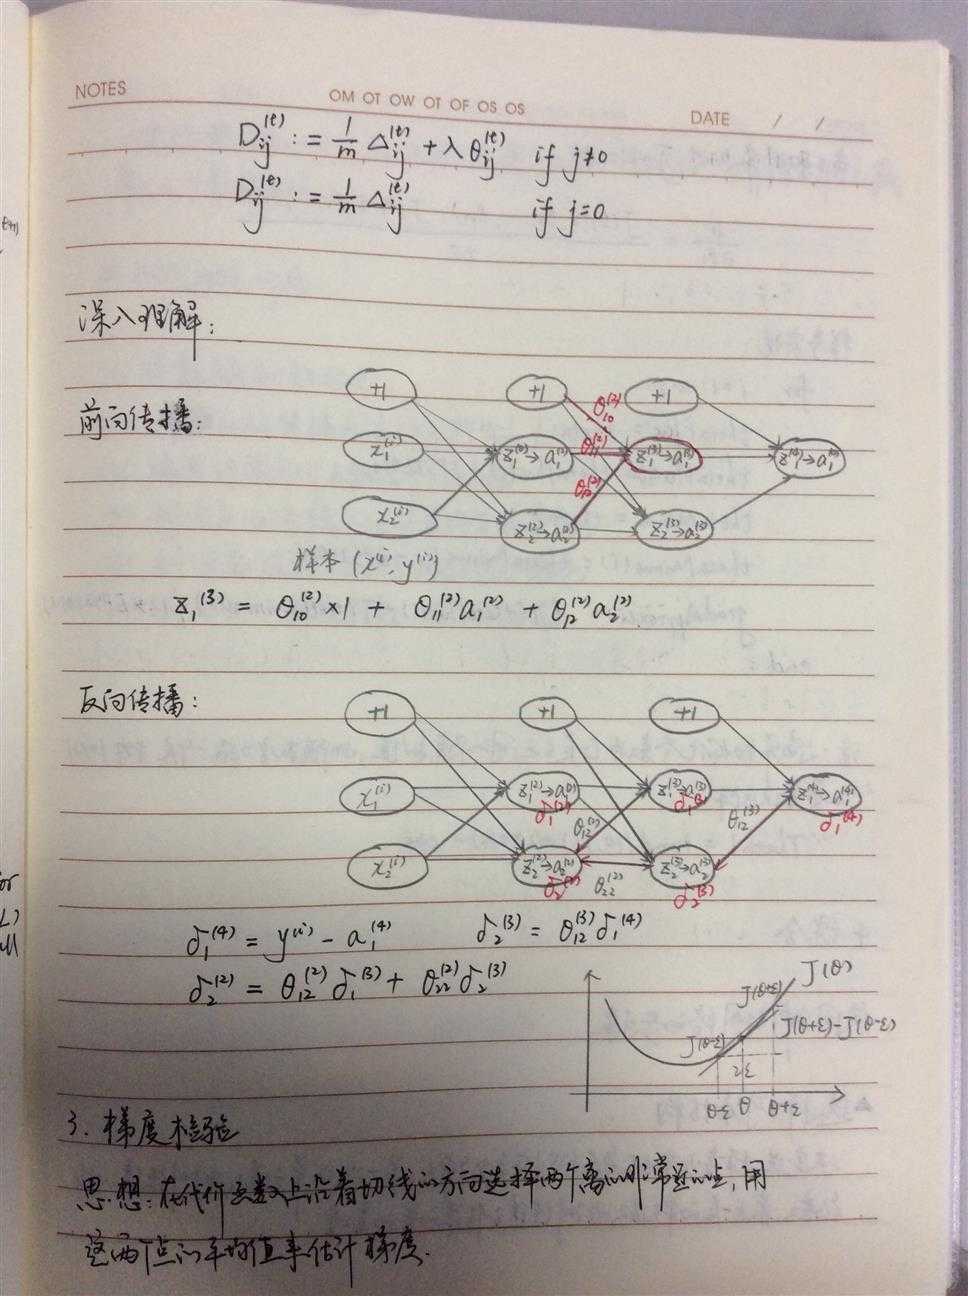 NOTES
OM OT OW OT OF OS OS
DATE / /
D_{ij}^{(l)} := \frac{1}{m} Δ_{ij}^{(l)} + λθ_{ij}^{(l)} if j≠0
D_{ij}^{(l)} := \frac{1}{m} Δ_{ij}^{(l)} if j=0
深入理解:
前向传播:
+1 +1 +1
θ_{10}^{(2)}
x_1^{(i)} z_1^{(2)}→a_1^{(2)} θ_{11}^{(2)} z_1^{(3)}→a_1^{(3)} z_1^{(4)}→a_1^{(4)}
θ_{12}^{(2)}
x_2^{(i)} z_2^{(2)}→a_2^{(2)} z_2^{(3)}→a_2^{(3)}
样本 (x^{(i)}, y^{(i)})
z_1^{(3)} = θ_{10}^{(2)}×1 + θ_{11}^{(2)}a_1^{(2)} + θ_{12}^{(2)}a_2^{(2)}
反向传播:
+1 +1 +1
x_1^{(i)} z_1^{(2)}→a_1^{(2)} z_1^{(3)}→a_1^{(3)} z_1^{(4)}→a_1^{(4)}
δ_1^{(2)} δ_1^{(3)} δ_1^{(4)}
θ_{12}^{(2)} θ_{12}^{(3)}
x_2^{(i)} z_2^{(2)}→a_2^{(2)} z_2^{(3)}→a_2^{(3)}
δ_2^{(2)} θ_{22}^{(2)} δ_2^{(3)}
δ_1^{(4)} = y^{(i)} - a_1^{(4)} δ_2^{(3)} = θ_{12}^{(3)}δ_1^{(4)}
δ_2^{(2)} = θ_{12}^{(2)}δ_1^{(3)} + θ_{22}^{(2)}δ_2^{(3)}
J(θ)
J(θ+ε)
J(θ+ε)-J(θ-ε)
J(θ-ε)
2ε
θ-ε θ θ+ε
3. 梯度检验
思想: 在代价函数上沿着切线的方向选择两个离的非常近的点, 用
这两个点的平均值来估计梯度.